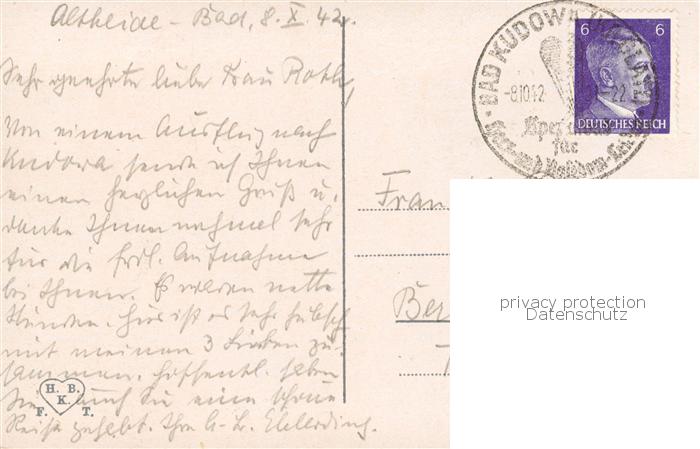 Altheide-Bad, 8. X. 42.
Sehr geehrte liebe Frau Roth,
Von einem Ausflug nach
Kudowa sende ich Ihnen
einen herzlichen Gruß u.
danke Ihnen nochmal sehr
für die frdl. Aufnahme
bei Ihnen. Es waren nette
Stunden. Hier ist es sehr hübsch
mit meinen 3 zu-
sammen. Hoffentl. haben
Sie auch Sie eine schöne
Reise gehabt. Ihre
H. B.
K.
F. T.
BAD KUDOWA
-8.10.42
-22
für
Herz-und
6 6
DEUTSCHES REICH
Frau
Ber
privacy protection
Datenschutz